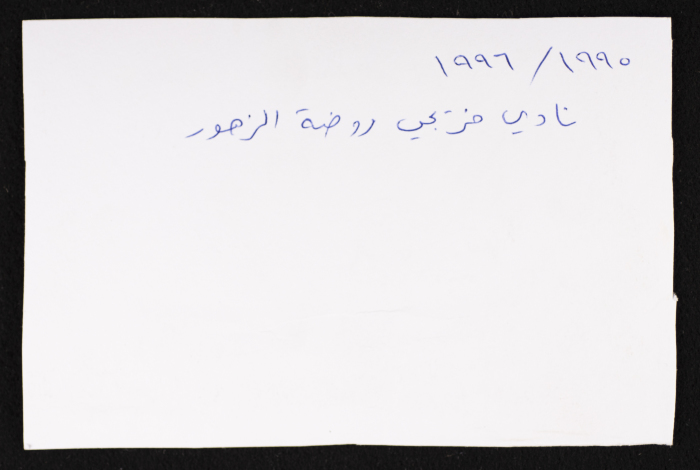 ١٩٩٠/ ١٩٩٦
نادي خريجي روضة الزهور